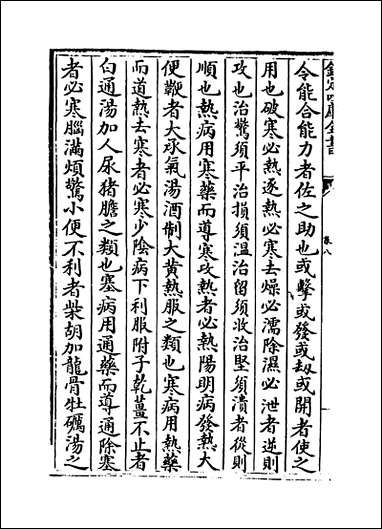 欽定四庫全書
卷八
令能合能力者佐之助也或擊或發或劫或開者使之
用也破寒必熱逐熱必寒去燥必濡除濕必泄者逆則
攻也治驚須平治損須溫治留須收治堅須潰者從則
順也熱病用寒藥而導寒攻熱者必熱陽明病發熱大
便鞕者大承氣湯酒制大黃熱服之類也寒病用熱藥
而導熱去寒者必寒少陰病下利服附子乾薑不止者
白通湯加人尿猪膽之類也塞病用通藥而導通除塞
者必寒腦滿煩驚小便不利者柴胡加龍骨牡礪湯之